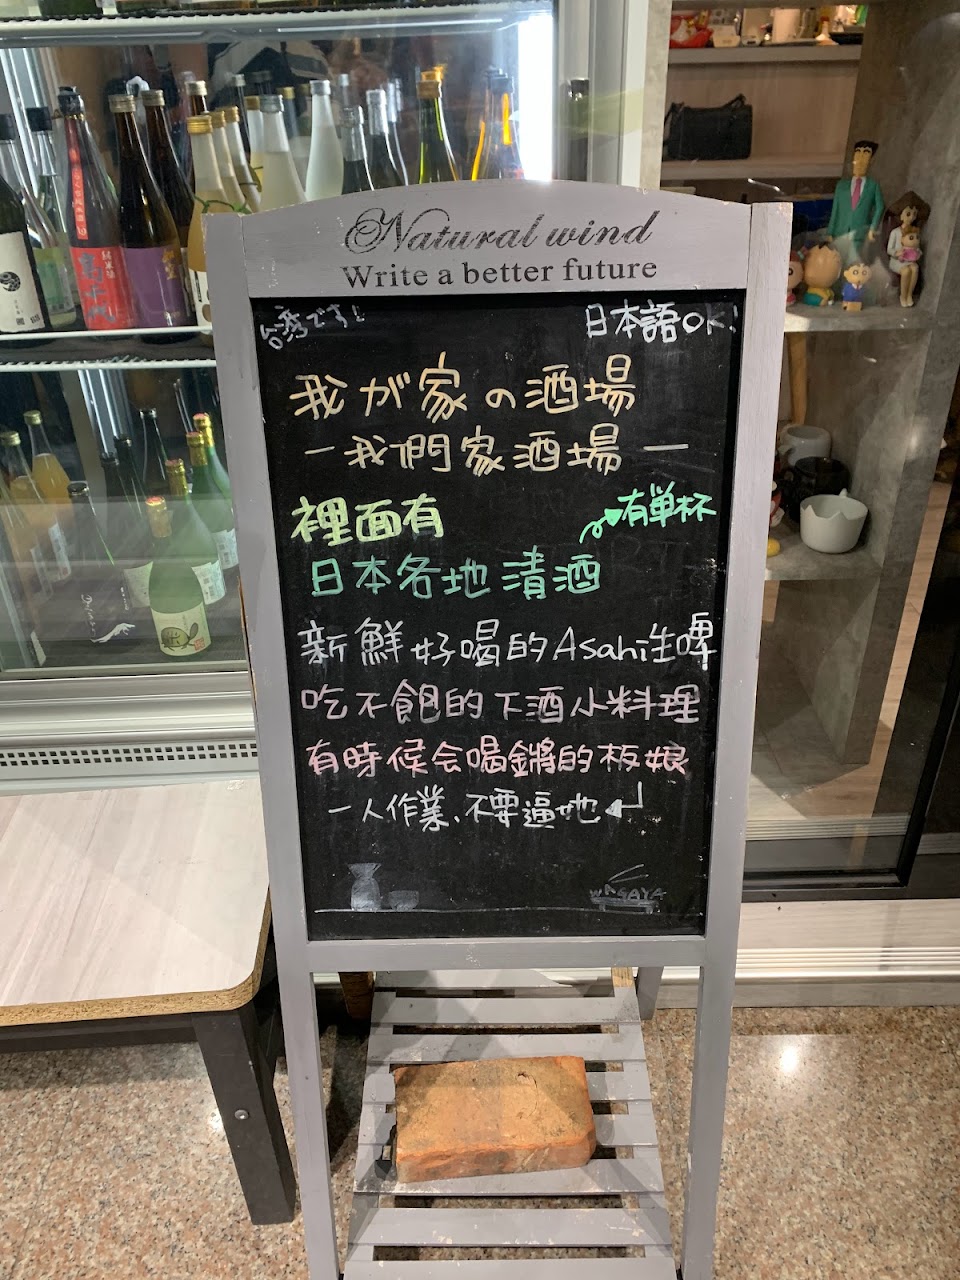 Natural wind
Write a better future
台湾です!
日本語OK!
我が家の酒場
－我們家酒場－
裡面有
有単杯
日本各地清酒
新鮮好喝的Asahi生啤
吃不飽的下酒小料理
有時候会喝鏘的板娘
一人作業、不要逼她
WAGAYA